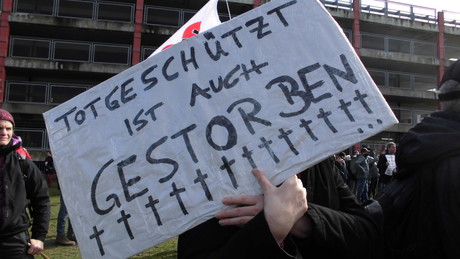 TOTGESCHÜTZT
IST AUCH
GESTORBEN